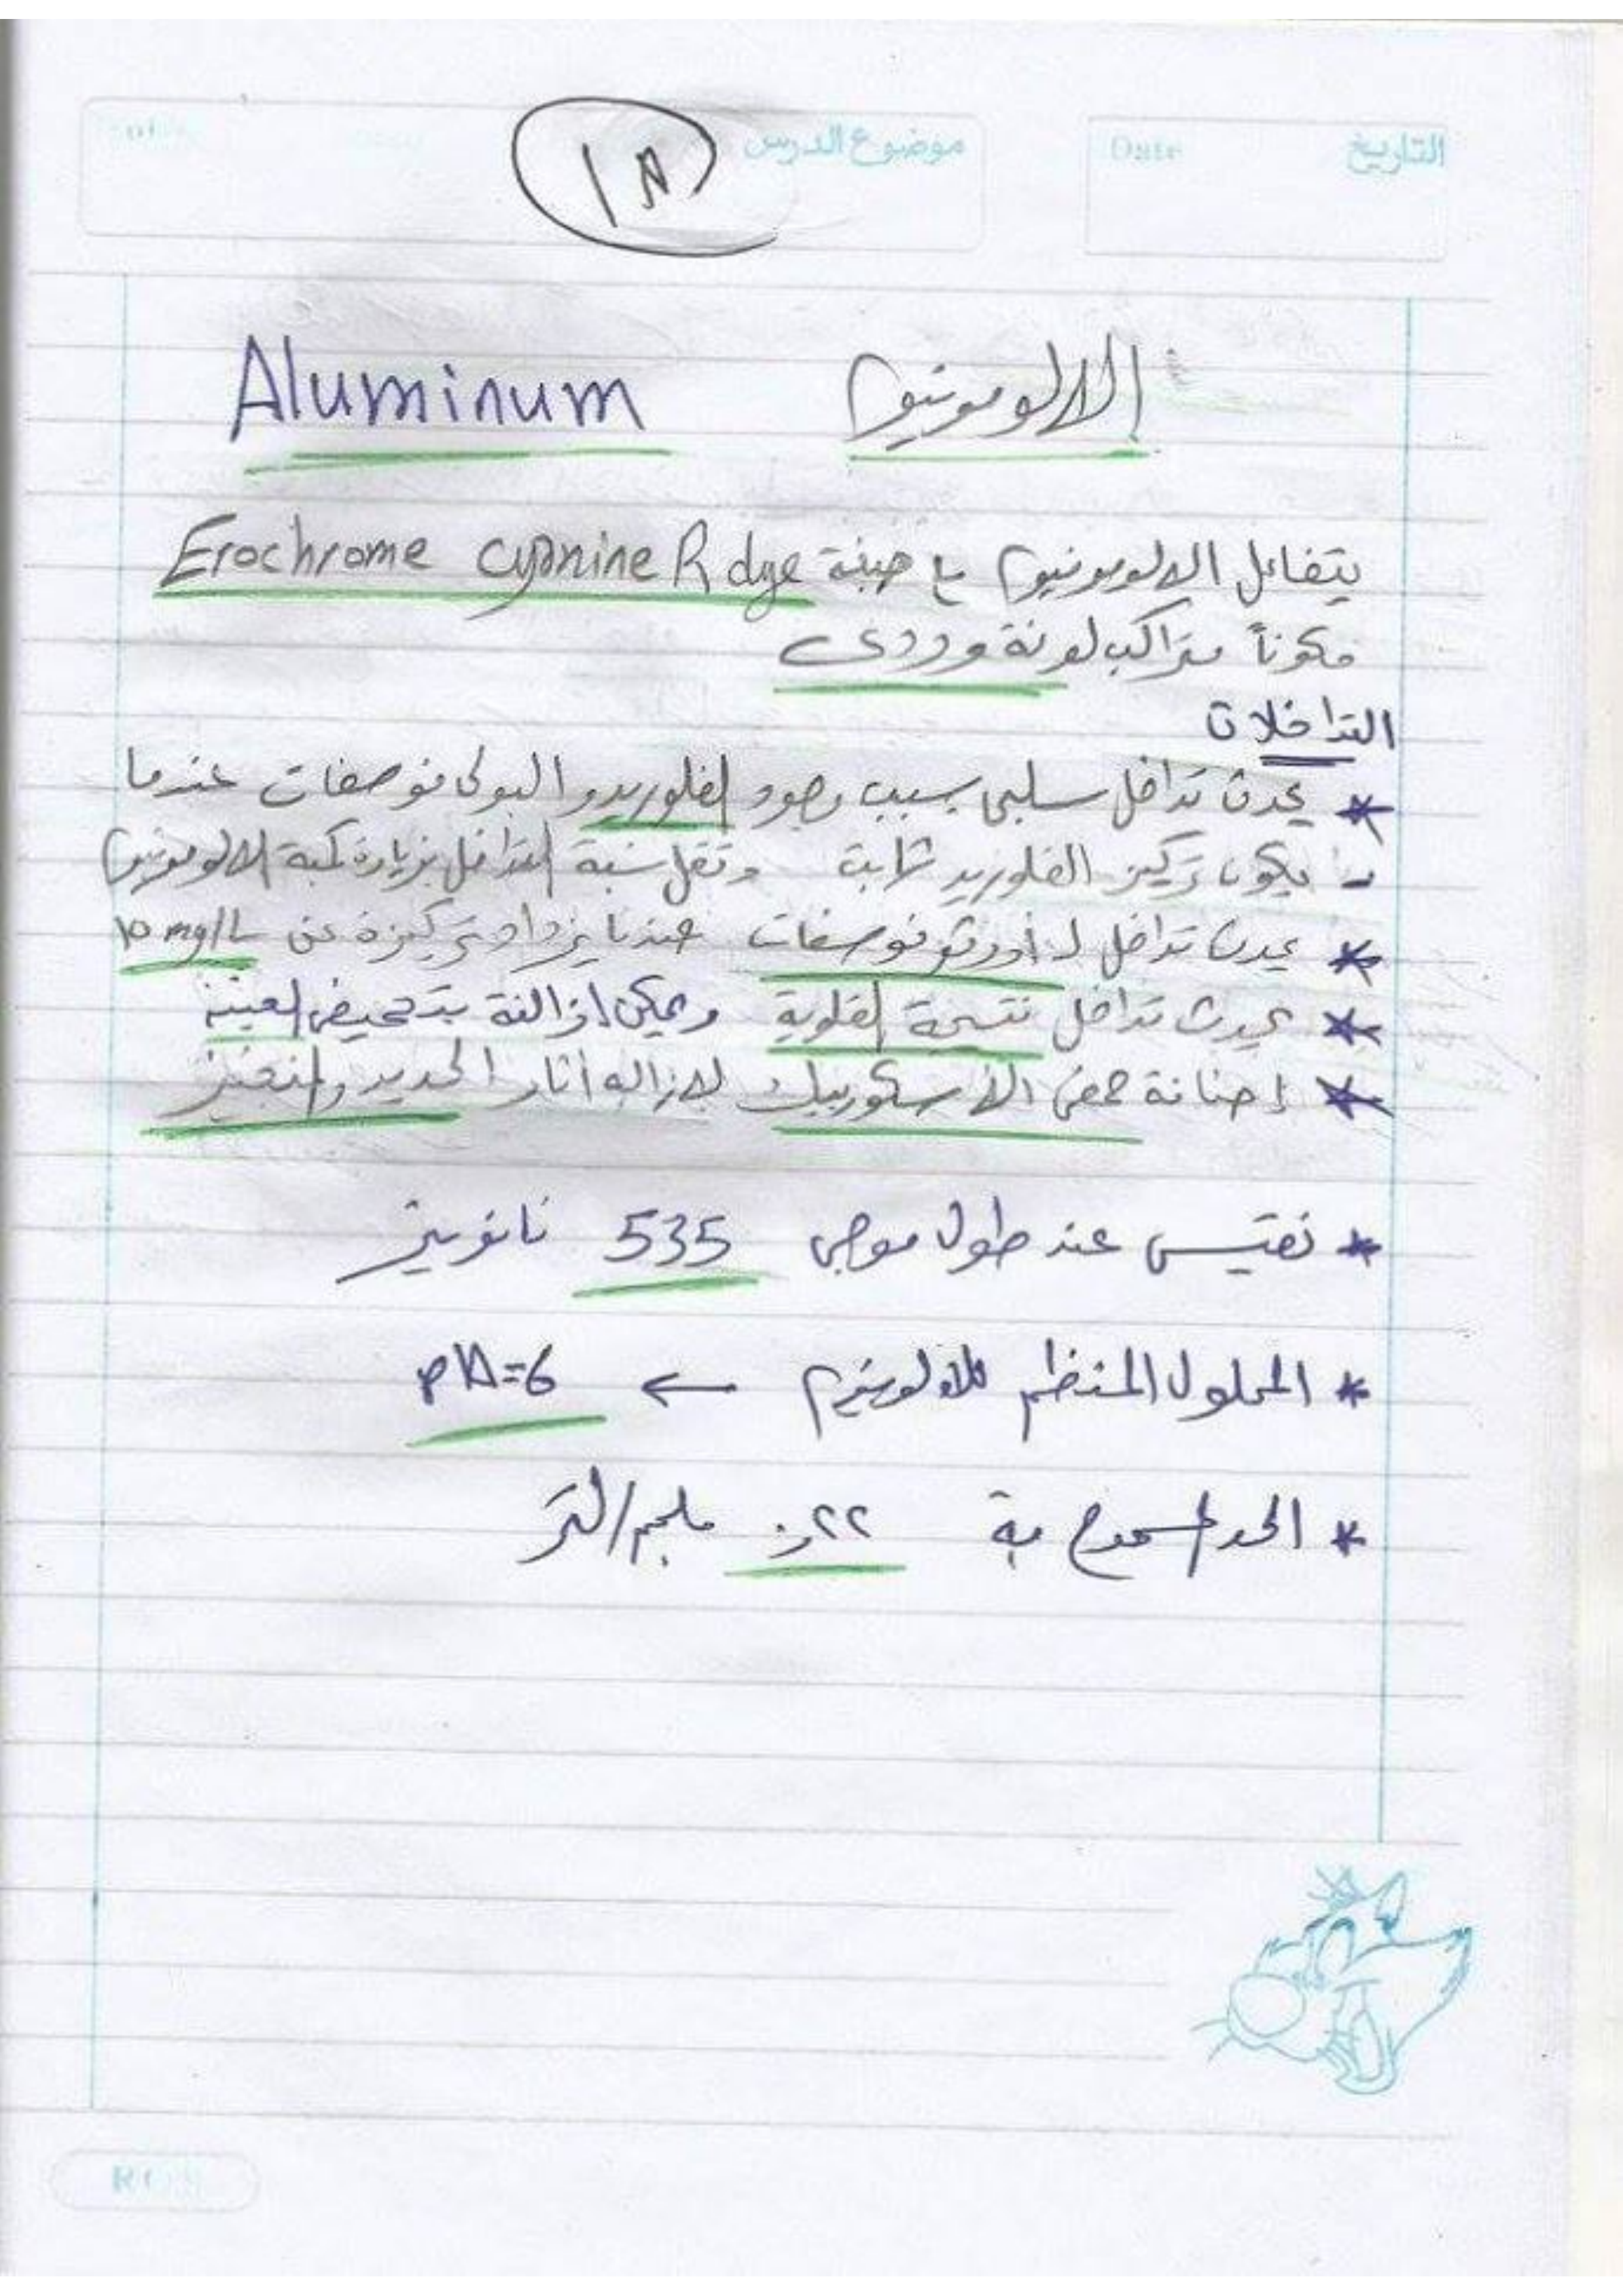 التاريخ Date موضوع الدرس
الالومونيوم Aluminum
يتفاعل الالومونيوم مع صبغة Erochrome cyanine R dye
مكوناً متراكب لونة وردى
التداخلات
* يحدث تداخل سلبى بسبب وجود الفلوريد و البولى فوصفات عندما
- يكون تركيز الفلوريد ثابت وتقل نسبة التداخل بزيادة كمية الالومونيوم
* يحدث تداخل لـ أورثو فوسفات عندما يزداد تركيزة عن 10 mg/L
* يحدث تداخل نتيجة القلوية ويمكن ازالتة بتحميض العينة
* إضافة حمض الأسكوربيك لازاله أثار الحديد والمنجنيز
* تقيس عند طول موجى 535 نانوميتر
* المحلول المنظم للالومنيوم ← pH=6
* الحد المسموح بة ٠,٢٢ ملجم/لتر